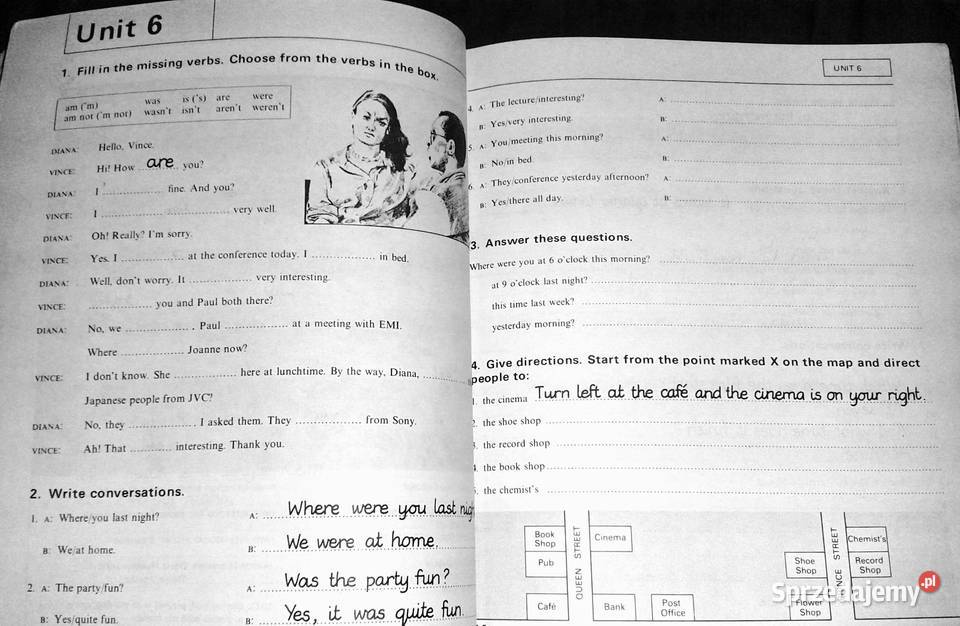 Unit 6
1. Fill in the missing verbs. Choose from the verbs in the box.
am ('m) was is ('s) are were
am not ('m not) wasn't isn't aren't weren't
DIANA: Hello, Vince.
VINCE: Hi! How are you?
DIANA: I ............ fine. And you?
VINCE: I ............ ............ very well.
DIANA: Oh! Really? I'm sorry.
VINCE: Yes. I ............ at the conference today. I ............ in bed.
DIANA: Well, don't worry. It ............ very interesting.
VINCE: ............ you and Paul both there?
DIANA: No, we ............ . Paul ............ at a meeting with EMI.
Where ............ Joanne now?
VINCE: I don't know. She ............ here at lunchtime. By the way, Diana, ............
Japanese people from JVC?
DIANA: No, they ............ . I asked them. They ............ from Sony.
VINCE: Ah! That ............ interesting. Thank you.
2. Write conversations.
1. A: Where/you last night? A: Where were you last nig
B: We/at home. B: We were at home.
2. A: The party/fun? A: Was the party fun?
B: Yes/quite fun. B: Yes, it was quite fun.
UNIT 6
4. A: The lecture/interesting? A: ............
B: Yes/very interesting. B: ............
5. A: You/meeting this morning? A: ............
B: No/in bed. B: ............
6. A: They/conference yesterday afternoon? A: ............
B: Yes/there all day. B: ............
3. Answer these questions.
Where were you at 6 o'clock this morning? ............
at 9 o'clock last night? ............
this time last week? ............
yesterday morning? ............
4. Give directions. Start from the point marked X on the map and direct
people to:
1. the cinema Turn left at the café and the cinema is on your right.
2. the shoe shop ............
3. the record shop ............
4. the book shop ............
5. the chemist's ............
Book Shop
Pub
Café
QUEEN STREET
Cinema
Bank
Post Office
Shoe Shop
Flower Shop
NCE STREET
Chemist's
Record Shop
Sprzedajemy.pl